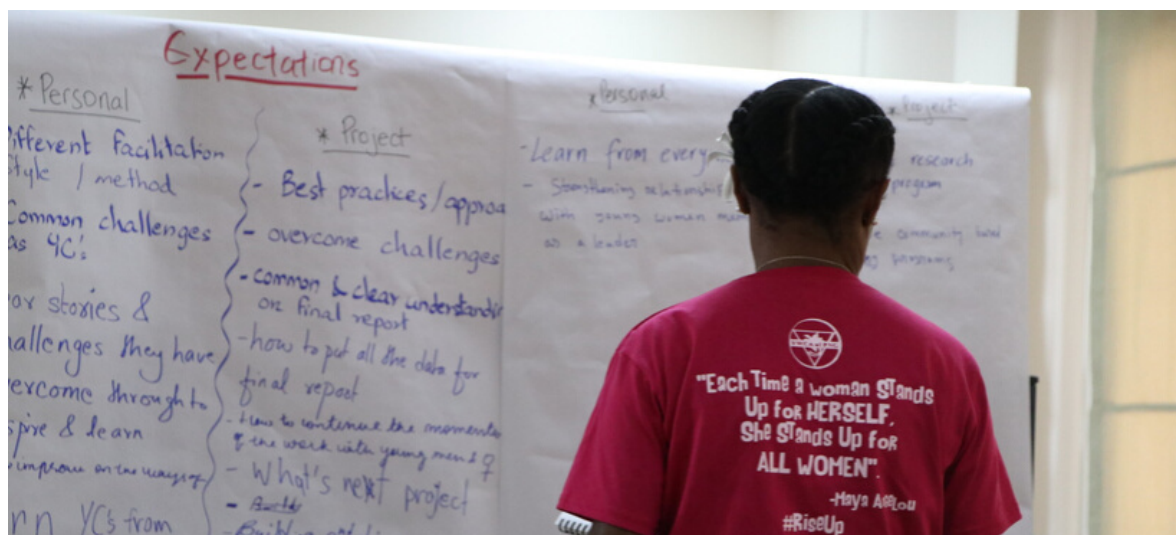 Expectations
* Personal
Different facilitation
style / method
Common challenges
as YC's
or stories &
challenges they have
overcome through to
spire & learn
improve on the ways of
YC's from
* Project
- Best practices/approa
- overcome challenges
- common & clear understandi
on final report
- how to put all the data for
final report
- How to continue the
of the work with young men & ♀
- What's next project
- Build
* Personal
- Learn from every
- Strengthening relationship
with young women
as a leader
* Project
research
program
community based
programs
"Each Time a woman STands
Up foR HERSELF,
She STands Up foR
ALL WOMEN".
-Maya AngeLou
#RiseUp